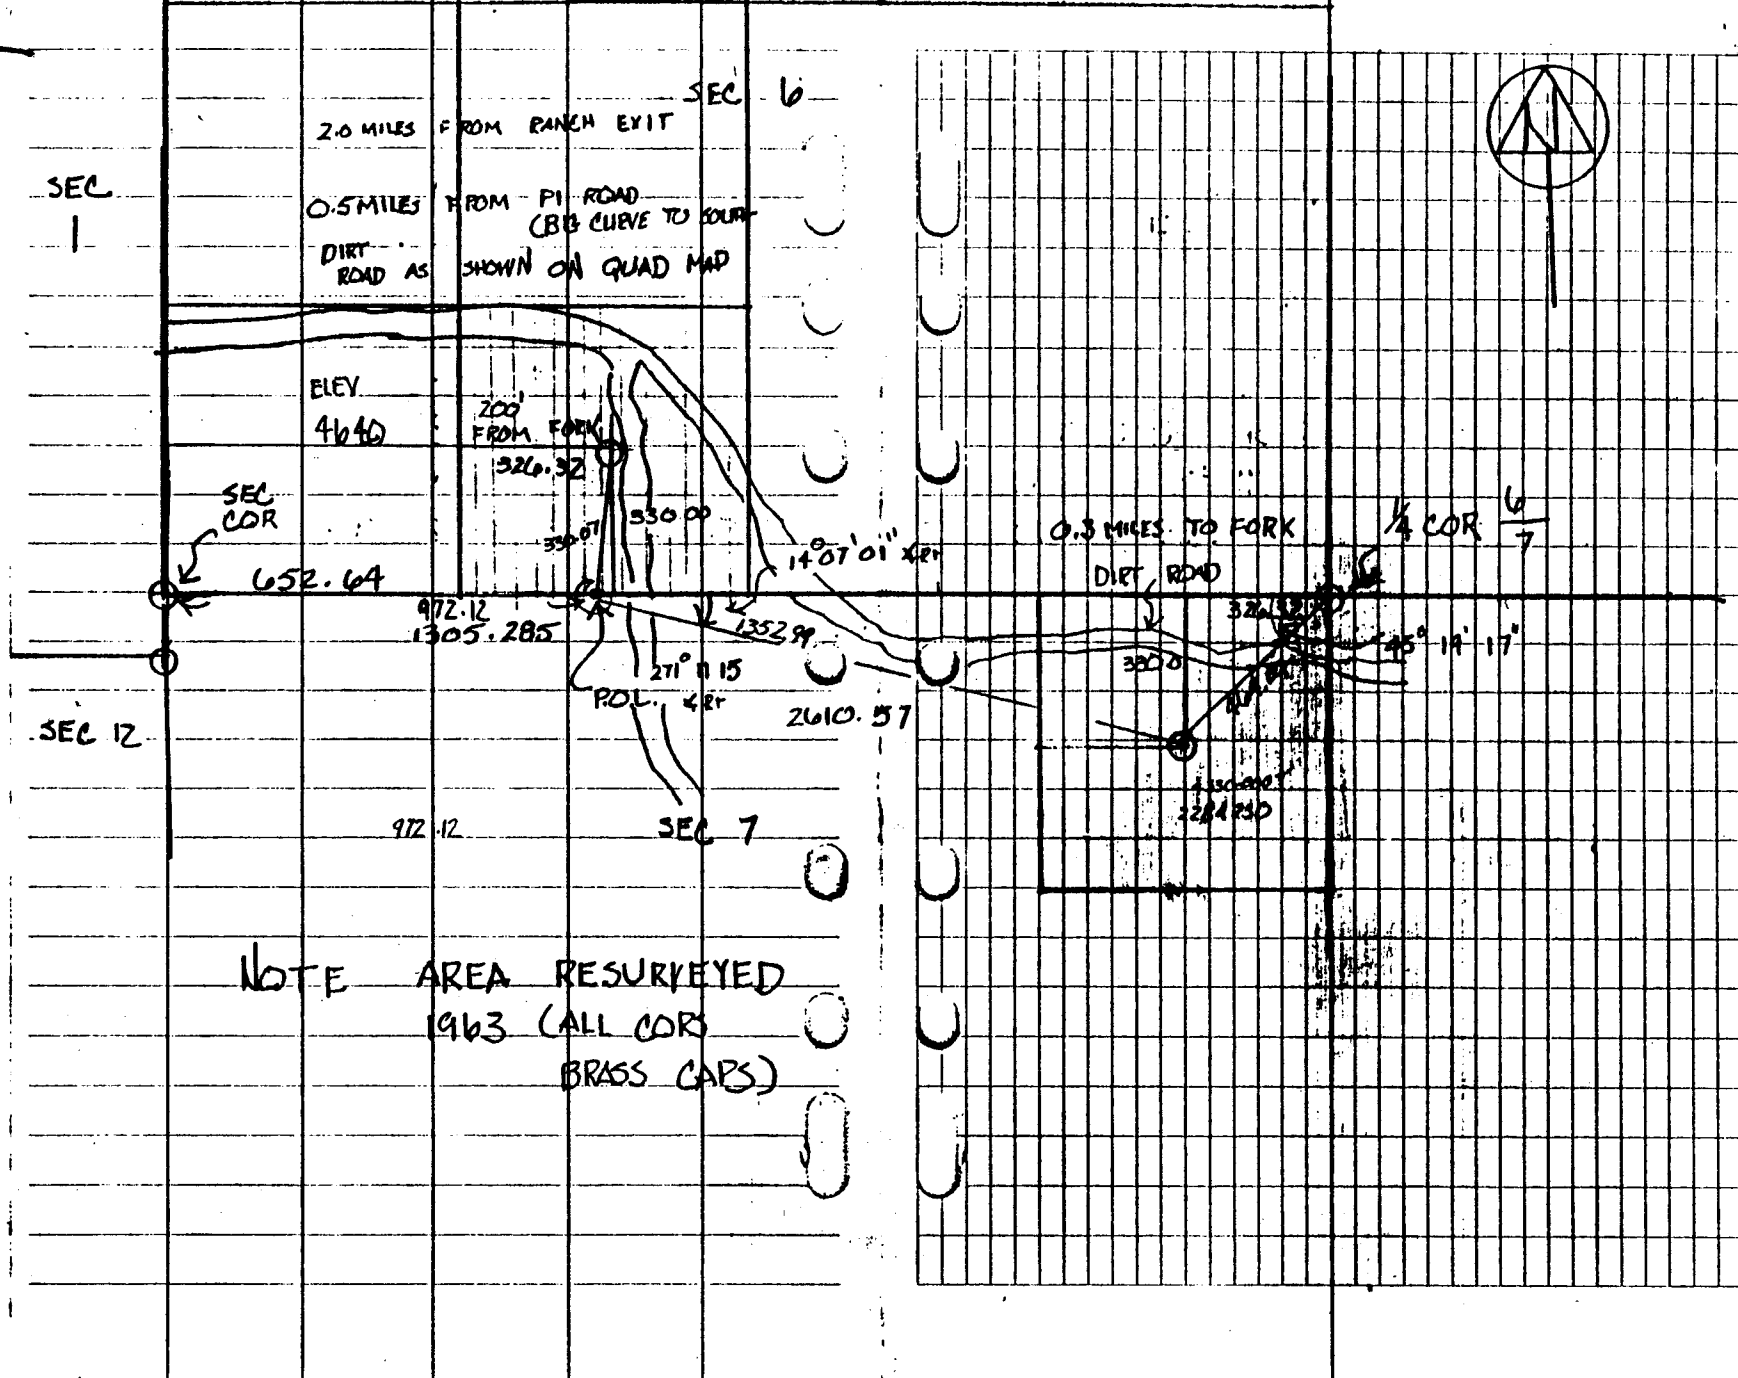 SEC 6
2.0 MILES FROM RANCH EXIT
SEC
1
0.5 MILES FROM PI ROAD
(BIG CURVE TO SOUTH
DIRT
ROAD AS SHOWN ON QUAD MAP
ELEV
4640
200'
FROM FORK
326.32
SEC
COR
330.07
330.00
14°07'01" ∡RT
0.3 MILES TO FORK
1/4 COR 6/7
DIRT ROAD
652.64
972.12
1305.285
1352.99
326.32
45° 19' 17"
330.0
271° 11 15
∡RT
P.O.L.
2610.57
SEC 12
972.12
SEC 7
NOTE AREA RESURVEYED
1963 (ALL CORS
BRASS CAPS)